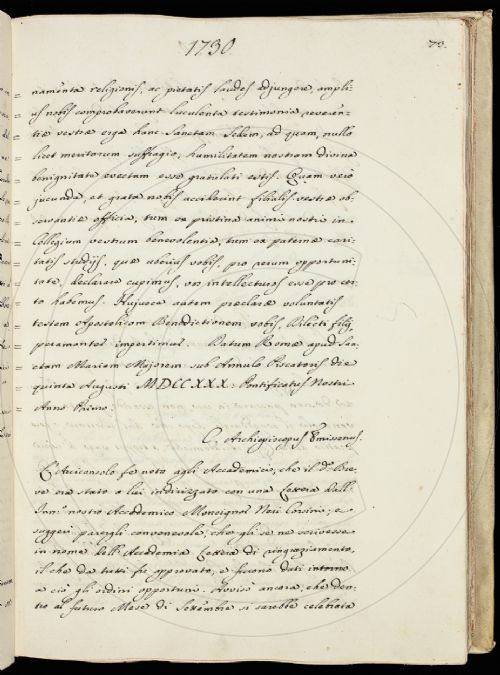 1730
73.
namenta religionis, ac pietatis laudes adjungere, ampli-
us nobis comprobaverunt luculenta testimonia, reveren-
tiæ vestræ erga hanc Sanctam Sedem, ad quam, nullo
licet meritorum suffragio, humilitatem nostram divina
benignitate evectam esse gratulati estis. Quam verò
jucunda, et grata nobis acciderint filialis vestræ ob-
servantiæ officia, tum ex pristina animi nostri in
Collegium vestrum benevolentia, tum ex paternæ cari-
tatis studijs, quæ uberius vobis, pro rerum opportuni-
tate, declarare cupimus, vos intellecturos esse pro cer-
to habemus. Hujusce autem præclaræ voluntatis
testem Apostolicam Benedictionem vobis, Dilecti filij,
peramanter impertimur. Datum Romæ apud San-
ctam Mariam Majorem sub Annulo Piscatoris die
quinta Augusti MDCCXXX: Pontificatus Nostri
Anno Primo.
C. Archiepiscopus Emissenus.
L'Arciconsolo fe noto agli Accademici, che il d.o Bre-
ve era stato a lui indirizzato con una Lettera dall'
nostro Accademico Monsignor Neri Corsini; e
suggerì parergli convenevole, che gli se ne scrivesse
in nome dell'Accademia Lettera di ringraziamento,
il che da tutti fu approvato, e furono dati intorno
a ciò gli ordini opportuni. Avvisò ancora, che den-
tro al futuro Mese di Settembre si sarebbe celebrata